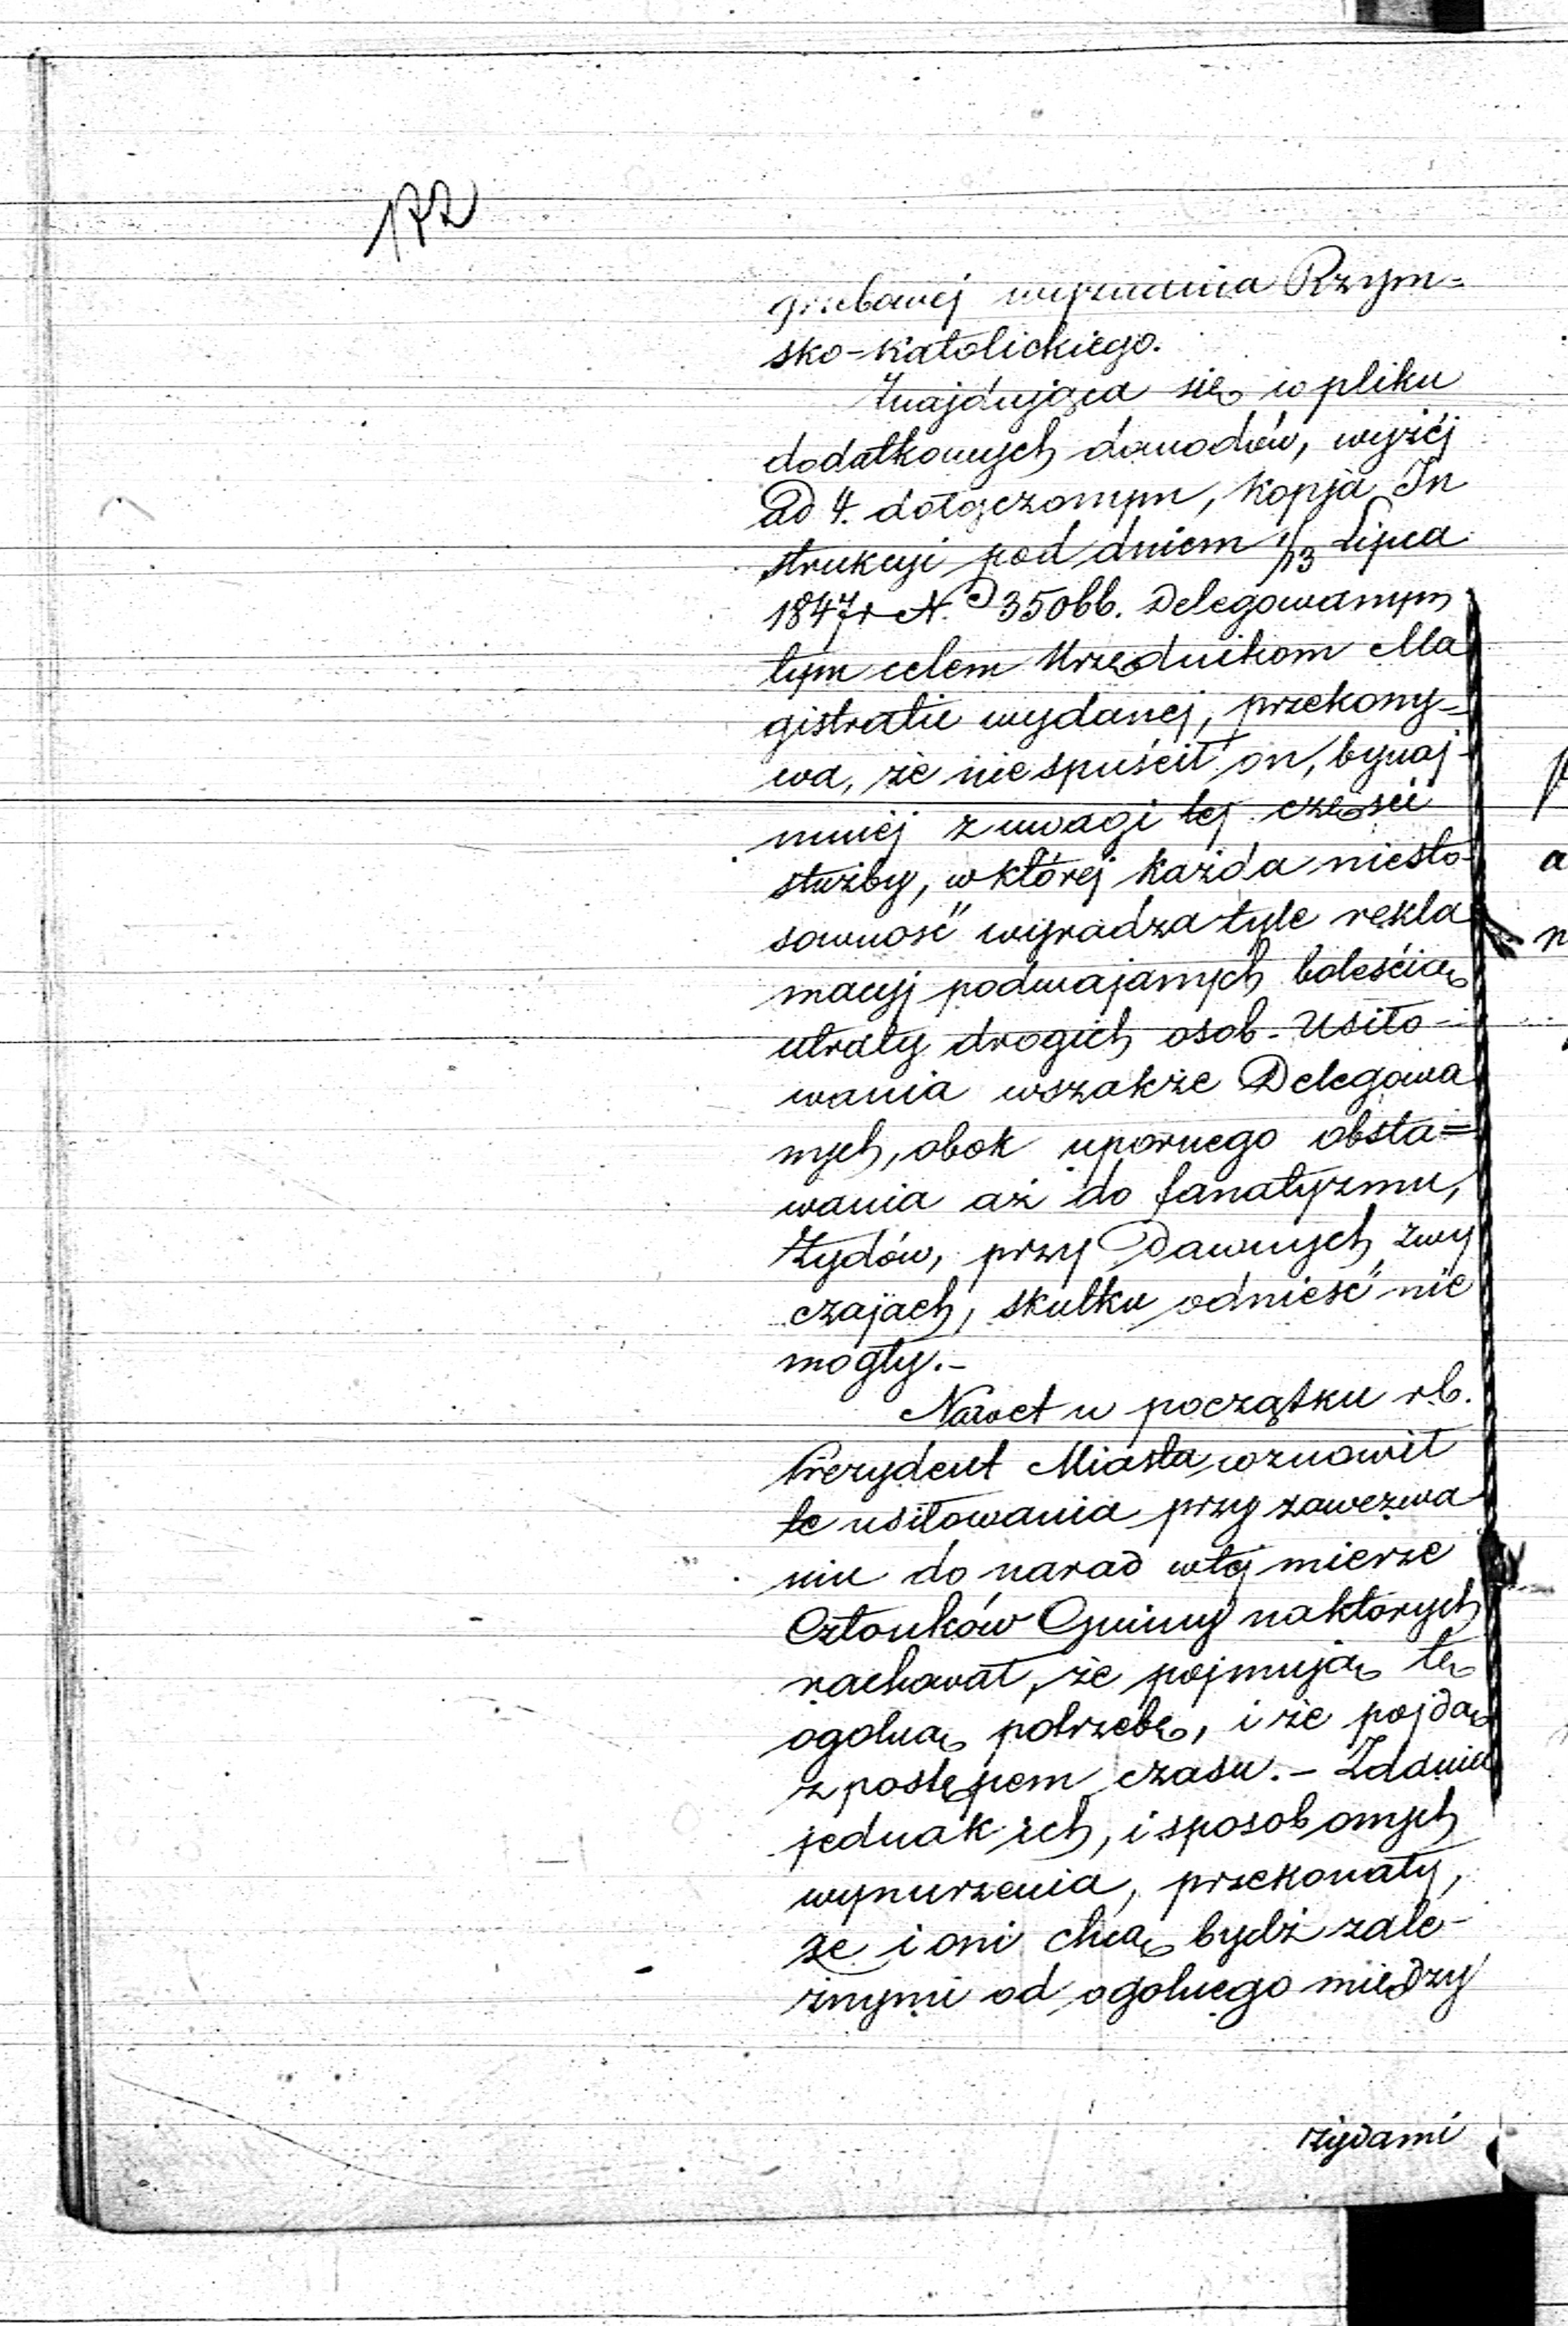 172
grzebowej wyznania Rzym=
sko-katolickiego.
Znajdująca się w pliku
dodatkowych dowodów, wyżéj
ad 4. dołączonym, kopja In
strukcyi pod dniem 1/13 Lipca
1847r N. 35066. Delegowanym
tym celem Urzędnikom Ma
gistratu wydanej, przekony=
wa, że nie spuścił on, bynaj-
mniéj z uwagi tej części
służby, w której każda niesto-
sowność wyradza tyle rekla
macyj podwajanych boleścią
utraty drogich osob. Usiło-
wania wszakże Delegowa
nych, obok upornego obsta=
wania aż do fanatyzmu,
Żydów, przy Dawnych zwy
czajach, skutku odnieść nie
mogły.-
Nawet w początku r.b.
Prezydent Miasta wznowił
te usiłowania przy zawezwa-
niu do narad w tej mierze
Członków Gminy na których
rachował, że pojmują tę
ogolną potrzebę, i że pojdą
z postępem czasu.- Zdania
jednak ich, i sposob onych
wynurzenia, przekonały,
że i oni chcą bydź zale-
żnymi od ogolnego między
żydami